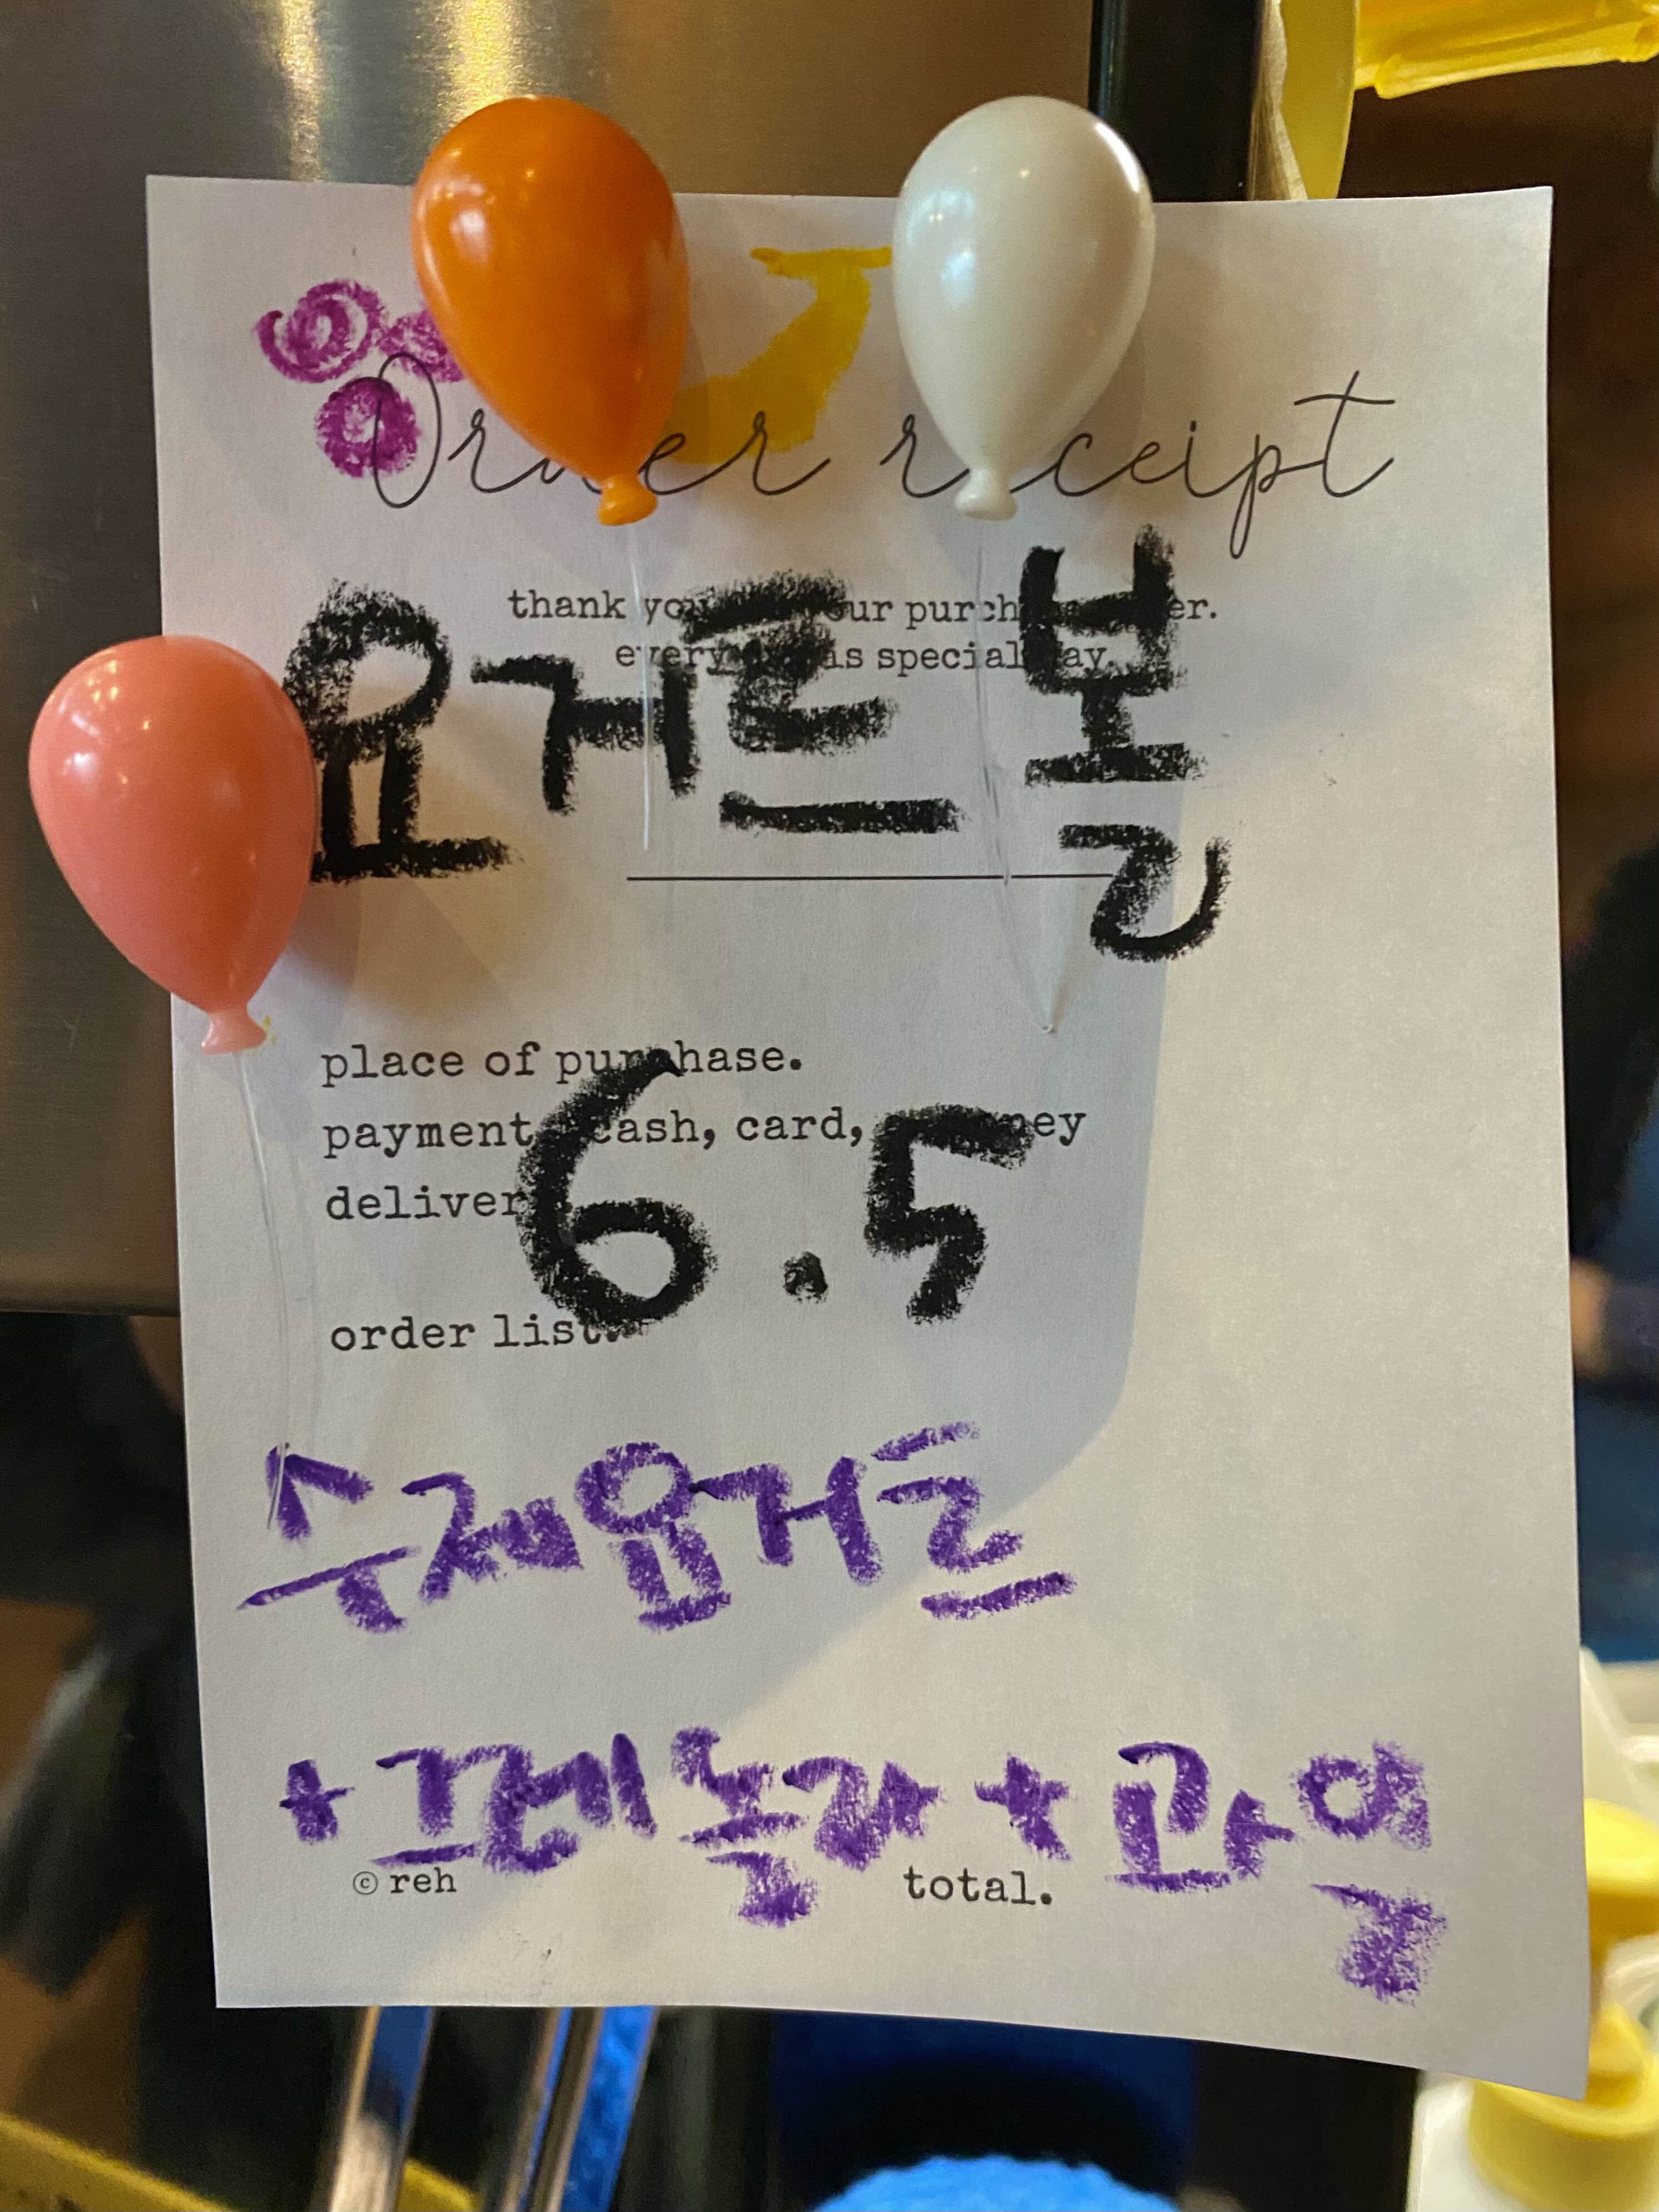 Order receipt
thank your purch er.
every is special day.
요거트볼
place of purchase.
payment. cash, card,
6.5
order list.
수제요거트
+ 그래놀라 + 과일
© reh total.